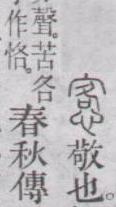 愙敬也。
聲。苦各
作恪。
春秋傳